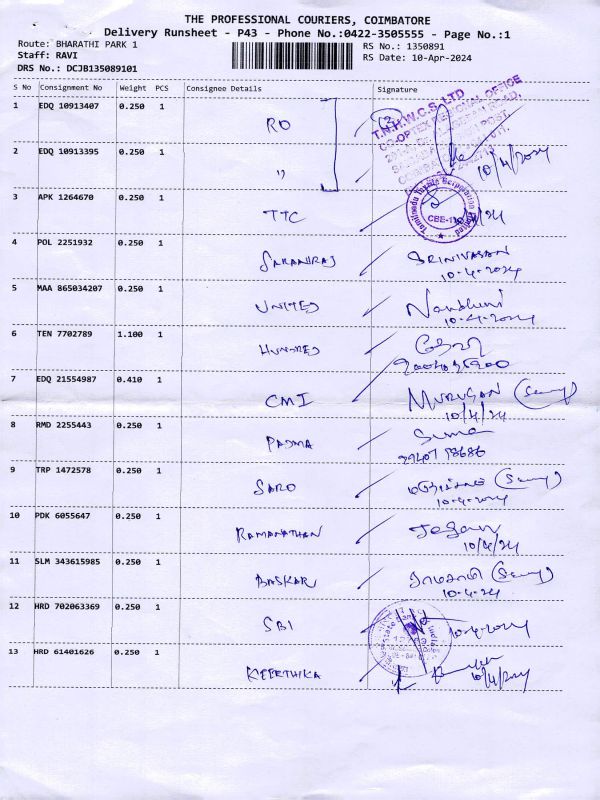 THE PROFESSIONAL COURIERS, COIMBATORE
Delivery Runsheet - P43 - Phone No.:0422-3505555 - Page No.:1
Route: BHARATHI PARK 1 RS No.: 1350891
Staff: RAVI RS Date: 10-Apr-2024
DRS No.: DCJB135089101
S No Consignment No Weight PCS Consignee Details Signature
1 EDQ 10913407 0.250 1 RO T.N.H.W.C.S. LTD
CO-OPTEX REGIONAL OFFICE
2 EDQ 10913395 0.250 1 " 10/4/2024
3 APK 1264670 0.250 1 TTC CBE-11
4 POL 2251932 0.250 1 SARANRAJ SRINIVASAN
10-4-2024
5 MAA 865034207 0.250 1 UNITED Nandhini
10-4-2024
6 TEN 7702789 1.100 1 HUNDRED
7 EDQ 21554987 0.410 1 CMI MURUGAN
10/4/24
8 RMD 2255443 0.250 1 PADMA Suma
9 TRP 1472578 0.250 1 SARO
10-4-2024
10 PDK 6055647 0.250 1 RAMANATHAN
10/4/24
11 SLM 343615985 0.250 1 BASKAR
10-4-24
12 HRD 702063369 0.250 1 SBI 10-4-2024
13 HRD 61401626 0.250 1 KEERTHIKA 10/4/2024